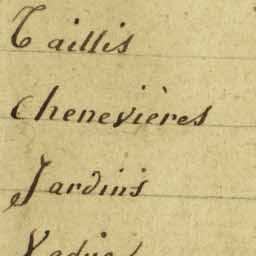 Taillis
Chenevières
Jardins